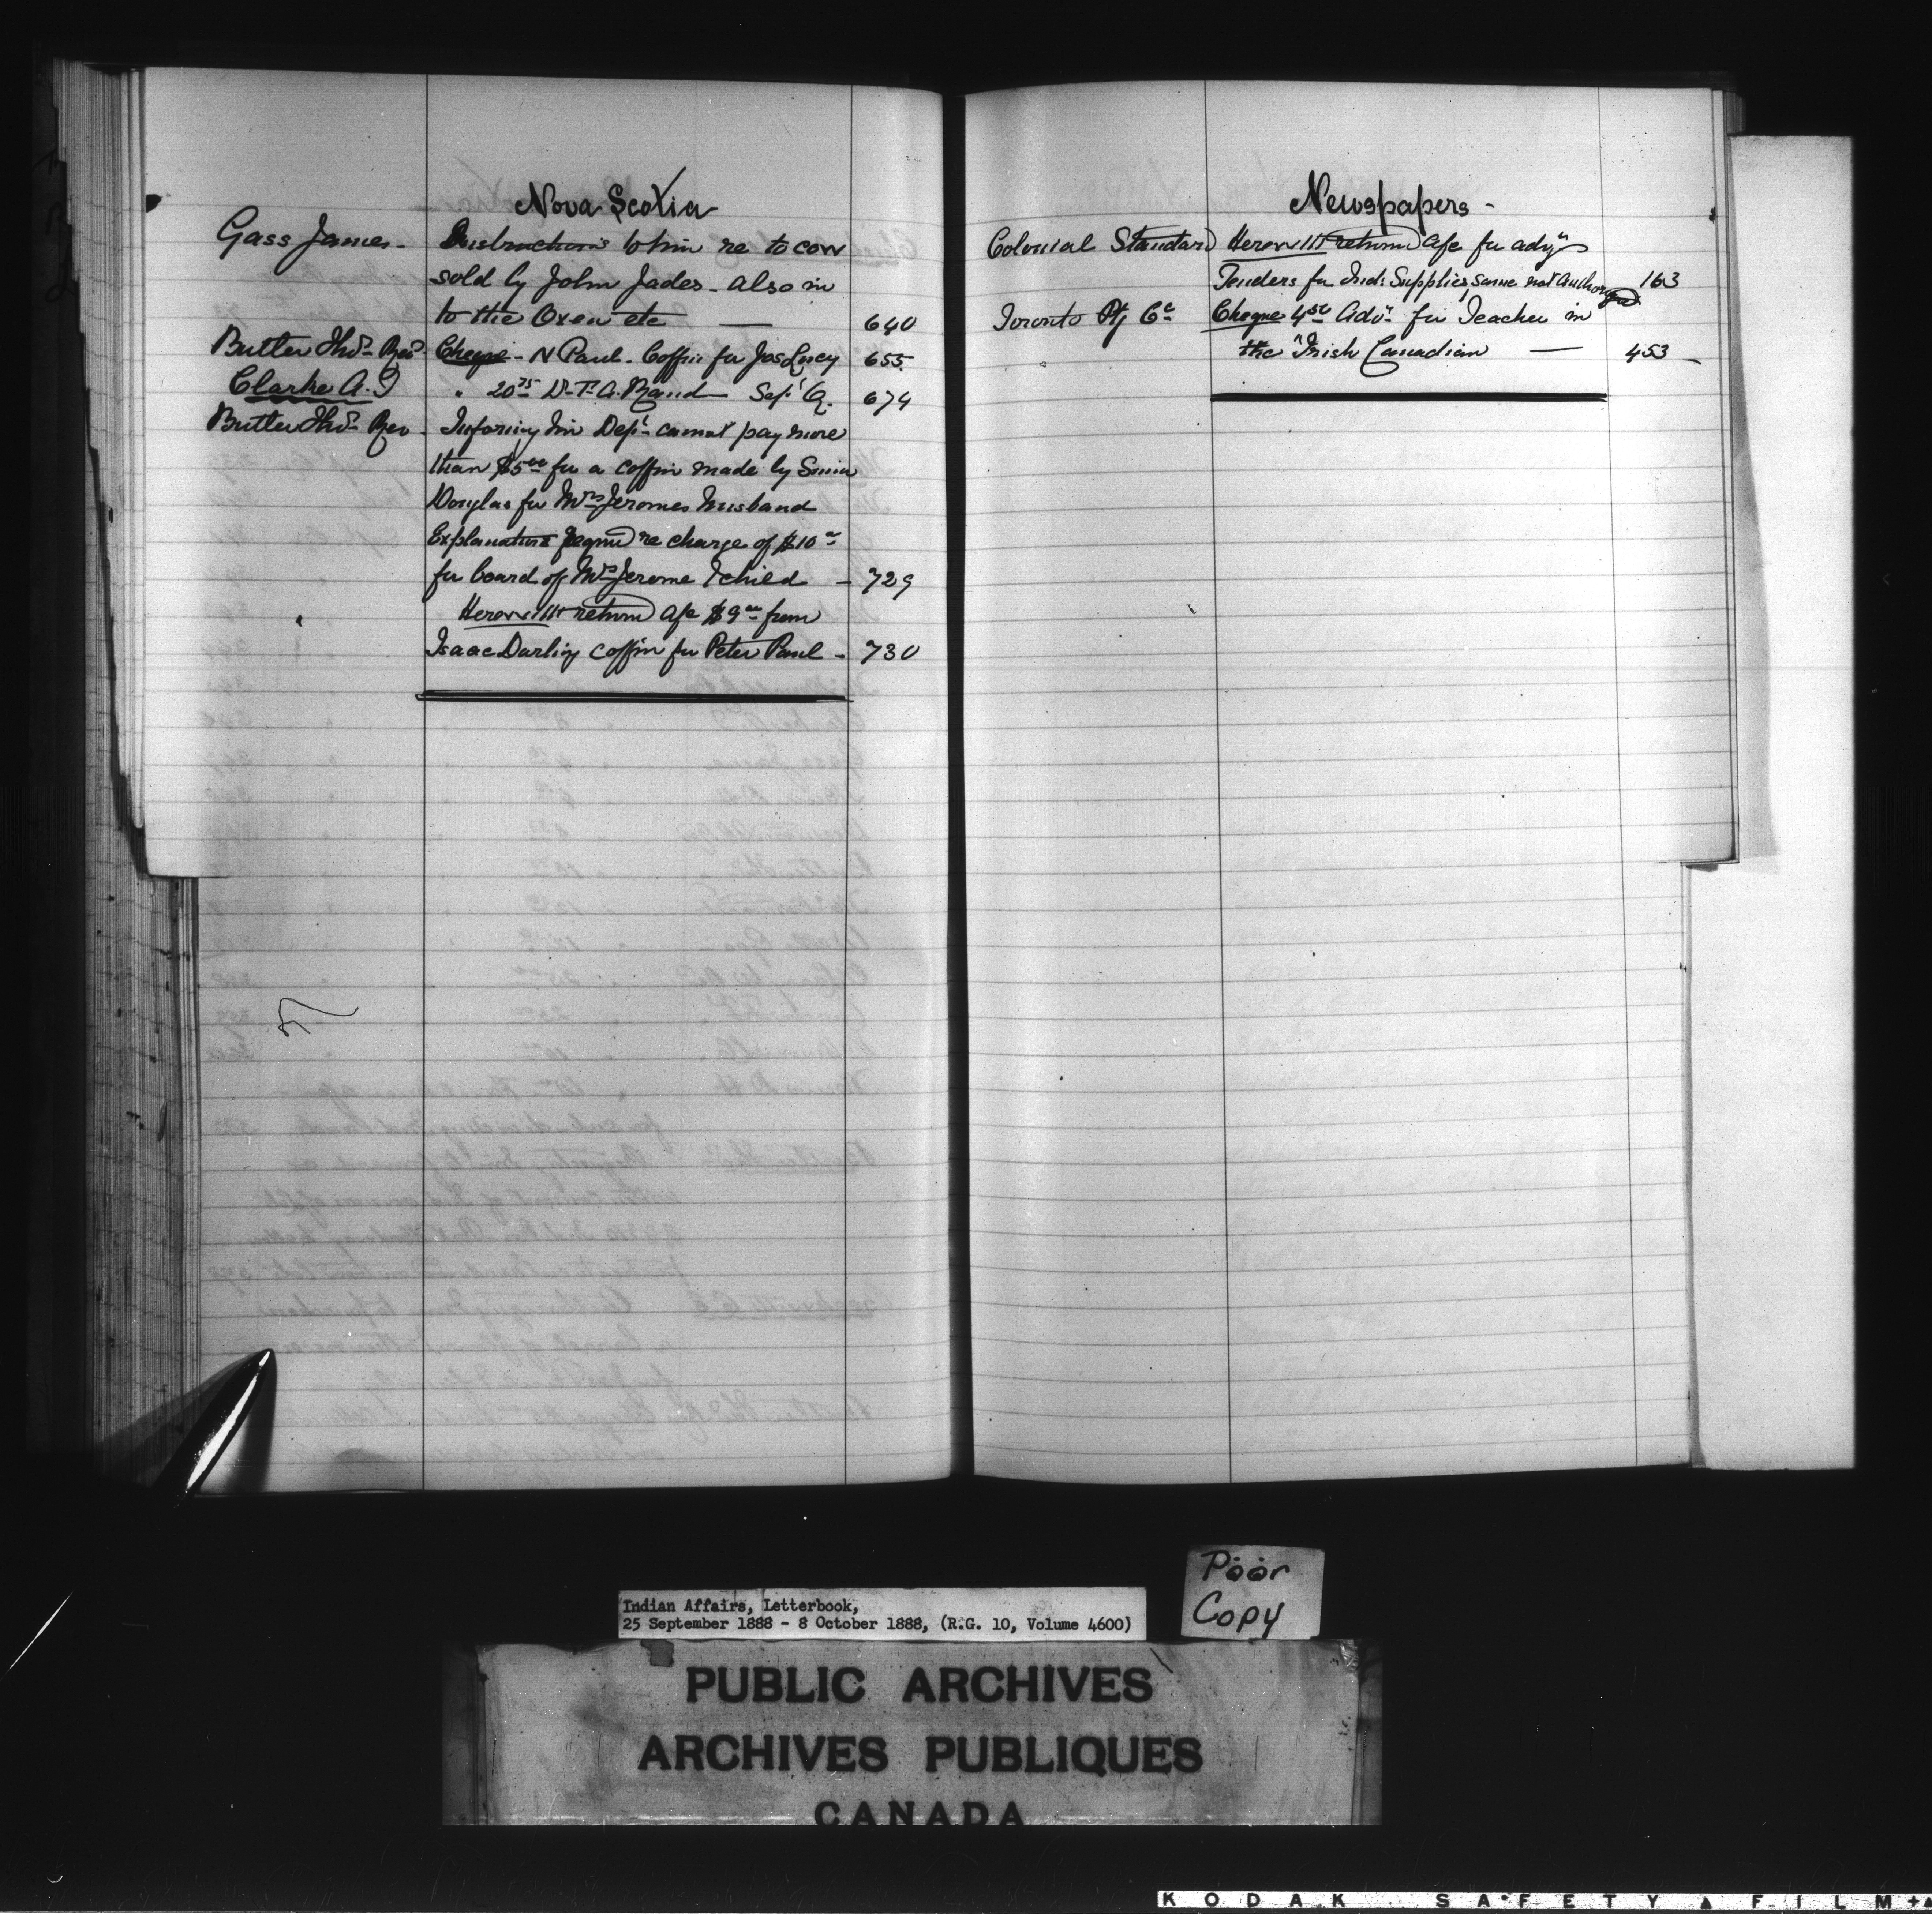 Nova Scotia
Gass James - Instructions to him re to cow
sold by John Jades - also in
to the Oxen etc — 640
Butler Thos. Rev. Cheque - N Paul - Coffin for Jas Lucy 655
Clarke A. I " 20 75 Dr. T. A. Rand Sept Q. 674
Butler Thos. Rev. Informing him Dept. cannot pay more
than $5 00 for a coffin made by
Douglas for Mrs Jeromes husband
Explanations reqd re charge of $10 00
for board of Mrs Jerome & child - 729
" Herewith return a/c $9 00 from
Isaac Darling coffin for Peter Paul - 730
Newspapers -
Colonial Standard Herewith return a/c for advg
Tenders for Ind: Supplies, same not authorized 163
Toronto Ptg Co. Cheque 4 50 Advg. for Teacher in
the "Irish Canadian — 453
Poor
Copy
Indian Affairs, Letterbook,
25 September 1888 - 8 October 1888, (R.G. 10, Volume 4600)
PUBLIC ARCHIVES
ARCHIVES PUBLIQUES
CANADA
KODAK SAFETY FILM